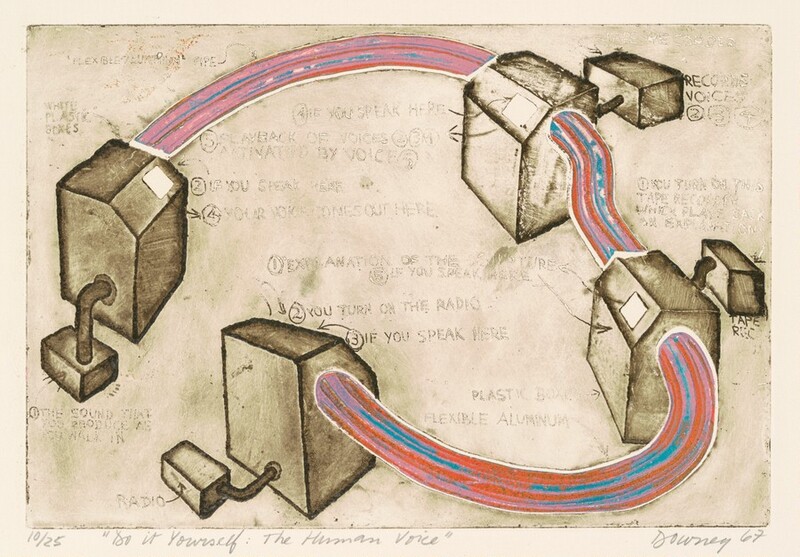 "FLEXIBLE ALUMINUM" PIPE
WHITE
PLASTIC
BOXES
④ IF YOU SPEAK HERE
⑤ PLAYBACK OF VOICES
ACTIVATED BY VOICE
② IF YOU SPEAK HERE
④ YOUR VOICE COMES OUT HERE
RECORDING
VOICE
② ③ ④
① YOU TURN ON THIS
TAPE RECORDER
WHICH PLAYS BACK
① EXPLANATION OF THE SCULPTURE
IF YOU SPEAK HERE
② YOU TURN ON THE RADIO
③ IF YOU SPEAK HERE
TAPE
REC
PLASTIC BOX
FLEXIBLE ALUMINUM
① THE SOUND THAT
YOU PRODUCE AS
YOU WALK IN
RADIO
10/25 "Do it Yourself: The Human Voice" Downey 67